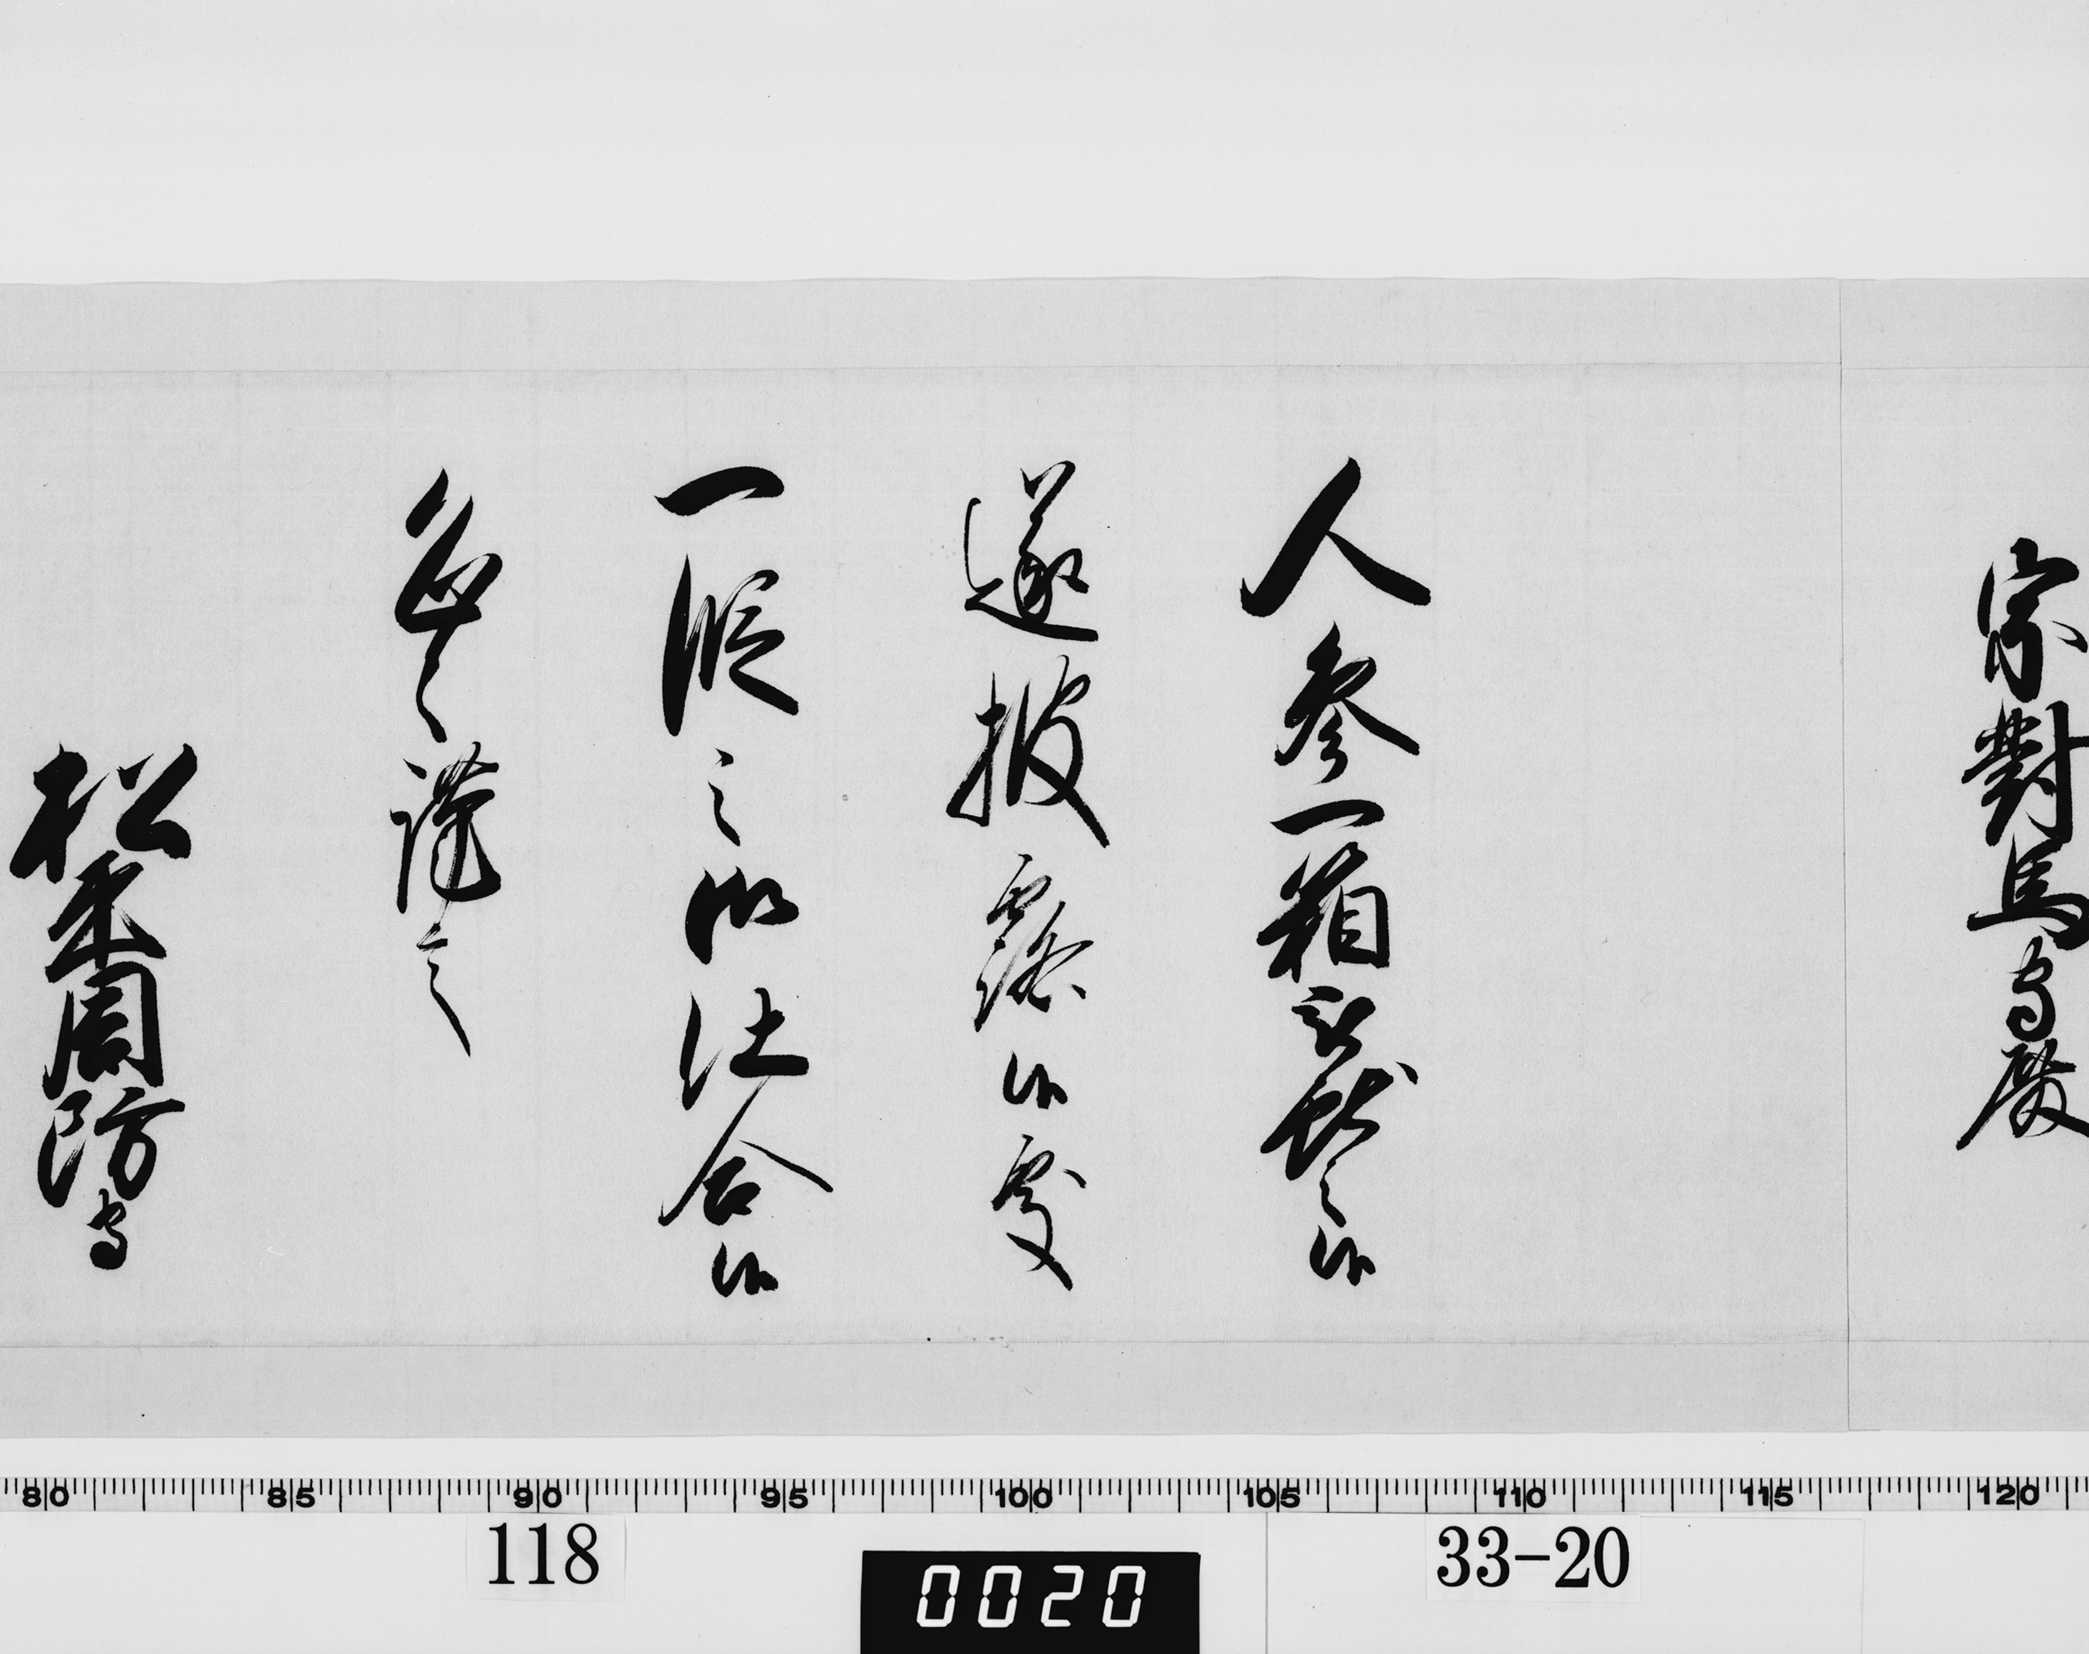 宗對馬守殿
人参一箱被献之候
遂披露候處
一段之御仕合候
恐々謹言
松平周防守
80 85 90 95 100 105 110 115 120
118
0020
33-20